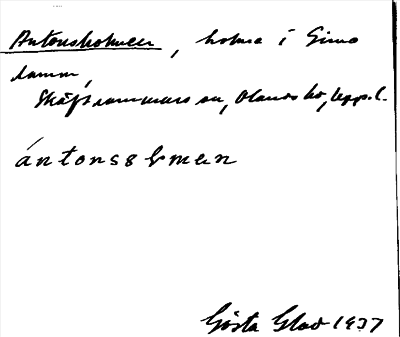 Antonsholmen, holme i Gimo
damm,
Skäfthammars sn, Olands hd, Upps. l.
ántonsɷlmen
Gösta Glad 1937